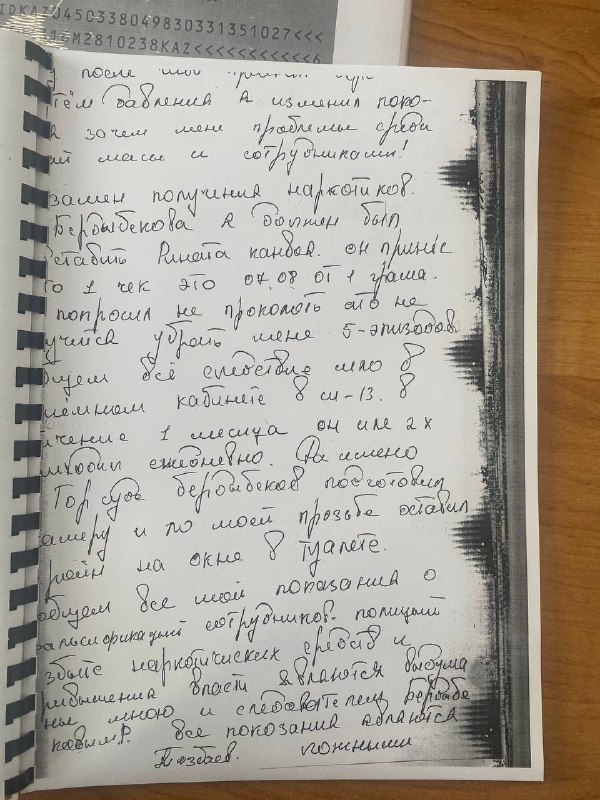 IDKAZ0450338049830331351027<<<
16M2810238KAZ<<<<<<<<<<<6
после
тём давления я изменил пока-
а зачем мне проблемы среди
ой масы и сотрудниками!
взамен получения наркотиков.
Бердыбекова я должен был
ставить Рината канвоя. он принёс
то 1 чек это 07.08 от 1 грама.
попросил не проколоть это не
учится убрать мене 5-эпизодов.
бщем всё следствие шло в
иёмном кабинете в си-13. в
ечение 1 месяца он мне 2х
иходил ежедневно.
Гор суде бердыбеков подготовил
амеру и по моей прозьбе оставил
роин на окне в туалете.
общем все мои показания о
альсификаций сотрудников. полиций
збыте наркотических средств и
ревышения власти являются выдума
ные мною и следователем Бердыбе
ковым Р. все показания являются
ложными